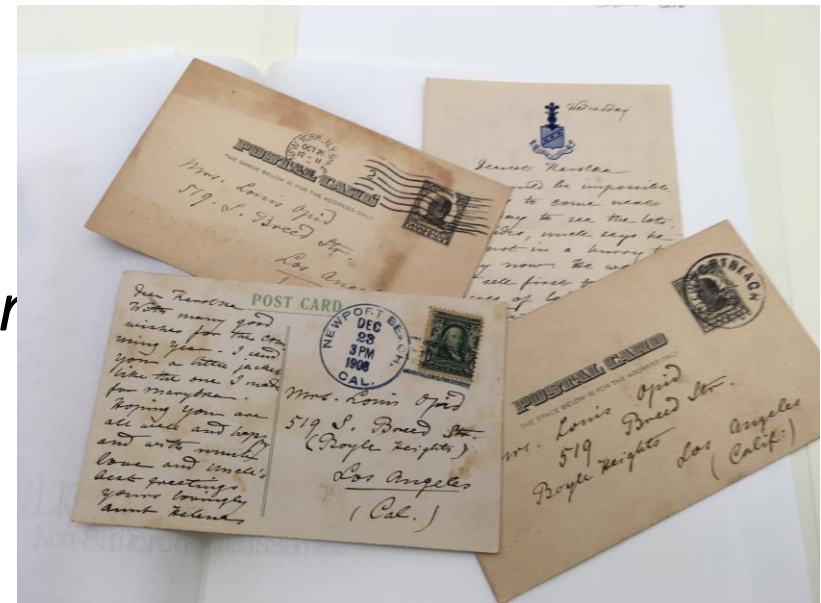 r
POSTAL CARD
THE SPACE BELOW IS FOR THE ADDRESS ONLY
OCT 26
12 - M
2
Mrs. Louis Opid
519. S. Breed Str.
Los Ang
Wednesday
Dearest Karolka
be impossible
to come next
to see the lots.
uncle says he
not in a hurry
now. He
sell first
of
POST CARD
Dear Karolka
With many good
wishes for the com
ming year - I send
you a little jacket
like the one I made
for marylka.
Hoping you are
all well and happy
and with much
love and uncle's
best greetings
yours lovingly
aunt Helena
NEWPORT BEACH,
DEC
23
3 PM
1908
CAL.
Mrs. Louis Opid
519 S. Breed Str.
(Boyle Heights)
Los Angeles
(Cal.)
POSTAL CARD
THE SPACE BELOW IS FOR THE ADDRESS ONLY
PORT BEACH
rs. Louis Opid
519 Breed Str.
Boyle Heights
Los Angeles
(Calif.)